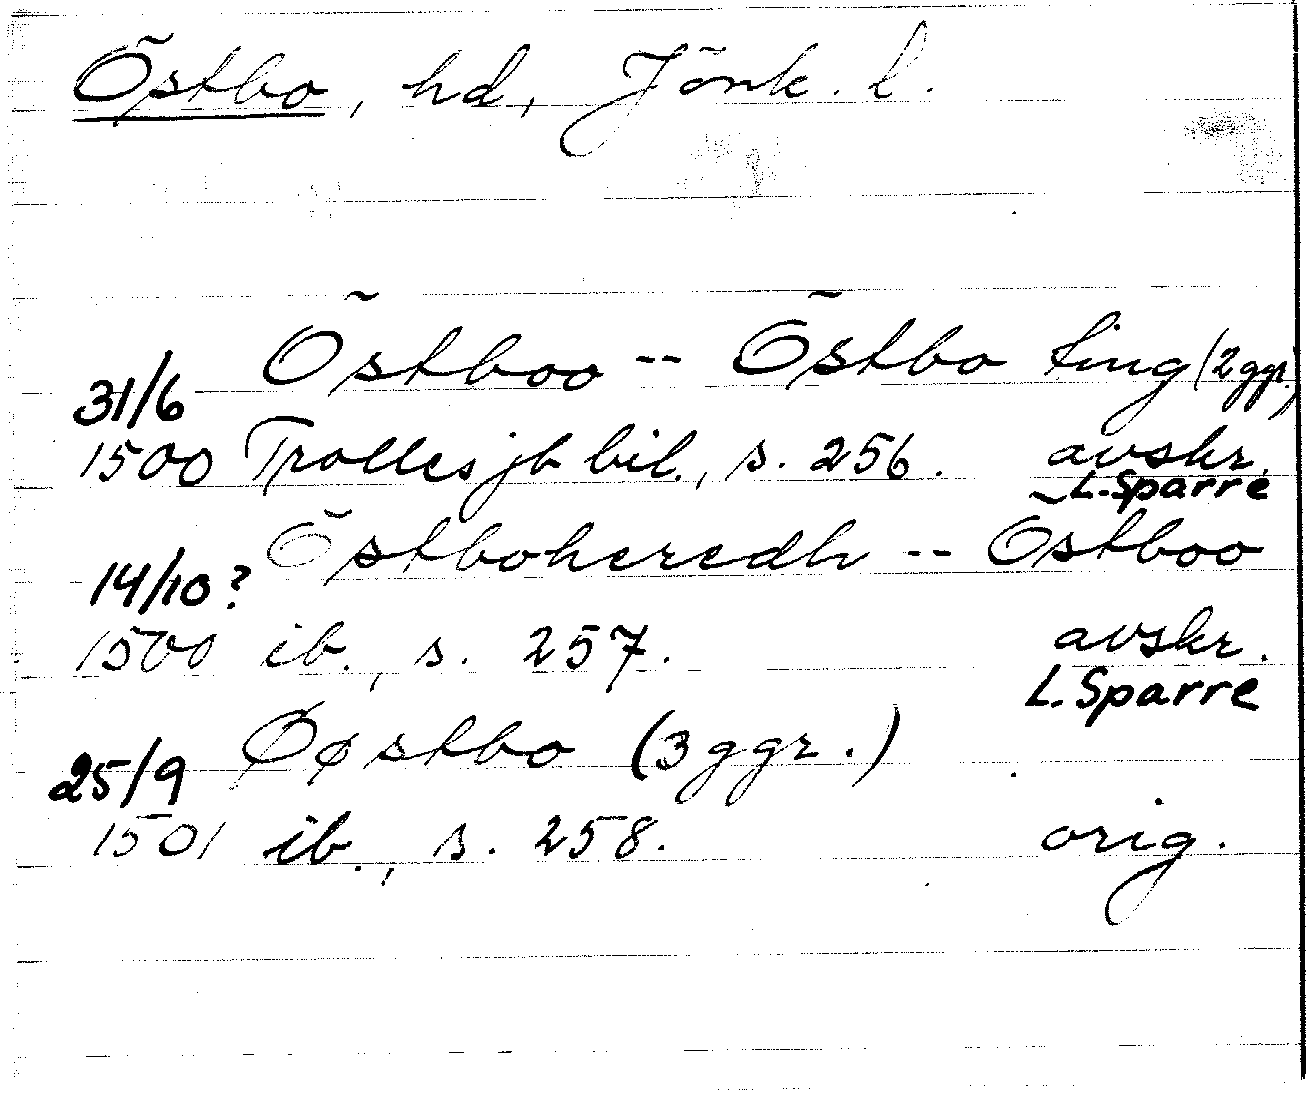 Östbo, hd, Jönk. l.
Östboo -- Östbo ting (2 ggr.)
31/6
1500 Trolles jb bil., s. 256. avskr.
L. Sparre
Östboheredh -- Östboo
14/10?
1500 ib., s. 257. avskr.
L. Sparre
Øøstbo (3 ggr.)
25/9
1501 ib., s. 258. orig.